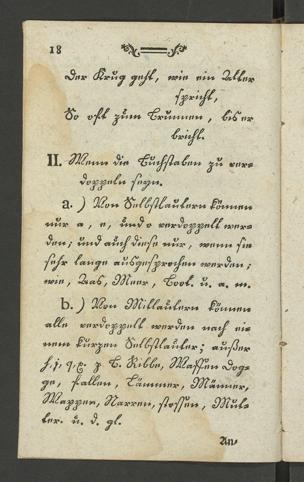 18
Der Krug geht, wie ein Alter
spricht,
So oft zum Brunnen, bis er
bricht.
II. Wenn die Buchstaben zu ver-
doppeln seyn.
a. ) Von Selbstlautern können
nur a, e, und o verdoppelt wer-
den; und auch diese nur, wenn sie
sehr lange ausgesprochen werden;
wie, Aas, Meer, Boot. u. a. m.
b. ) Von Mitlautern können
alle verdoppelt werden nach ei-
nem kurzen Selbstlauter; außer
h. j. q. x. z. B. Ribbe, Waffen Dog-
ge, fallen, Lämmer, Männer,
Wappen, Narren, stossen, Mut-
ter. u. d. gl.
An-